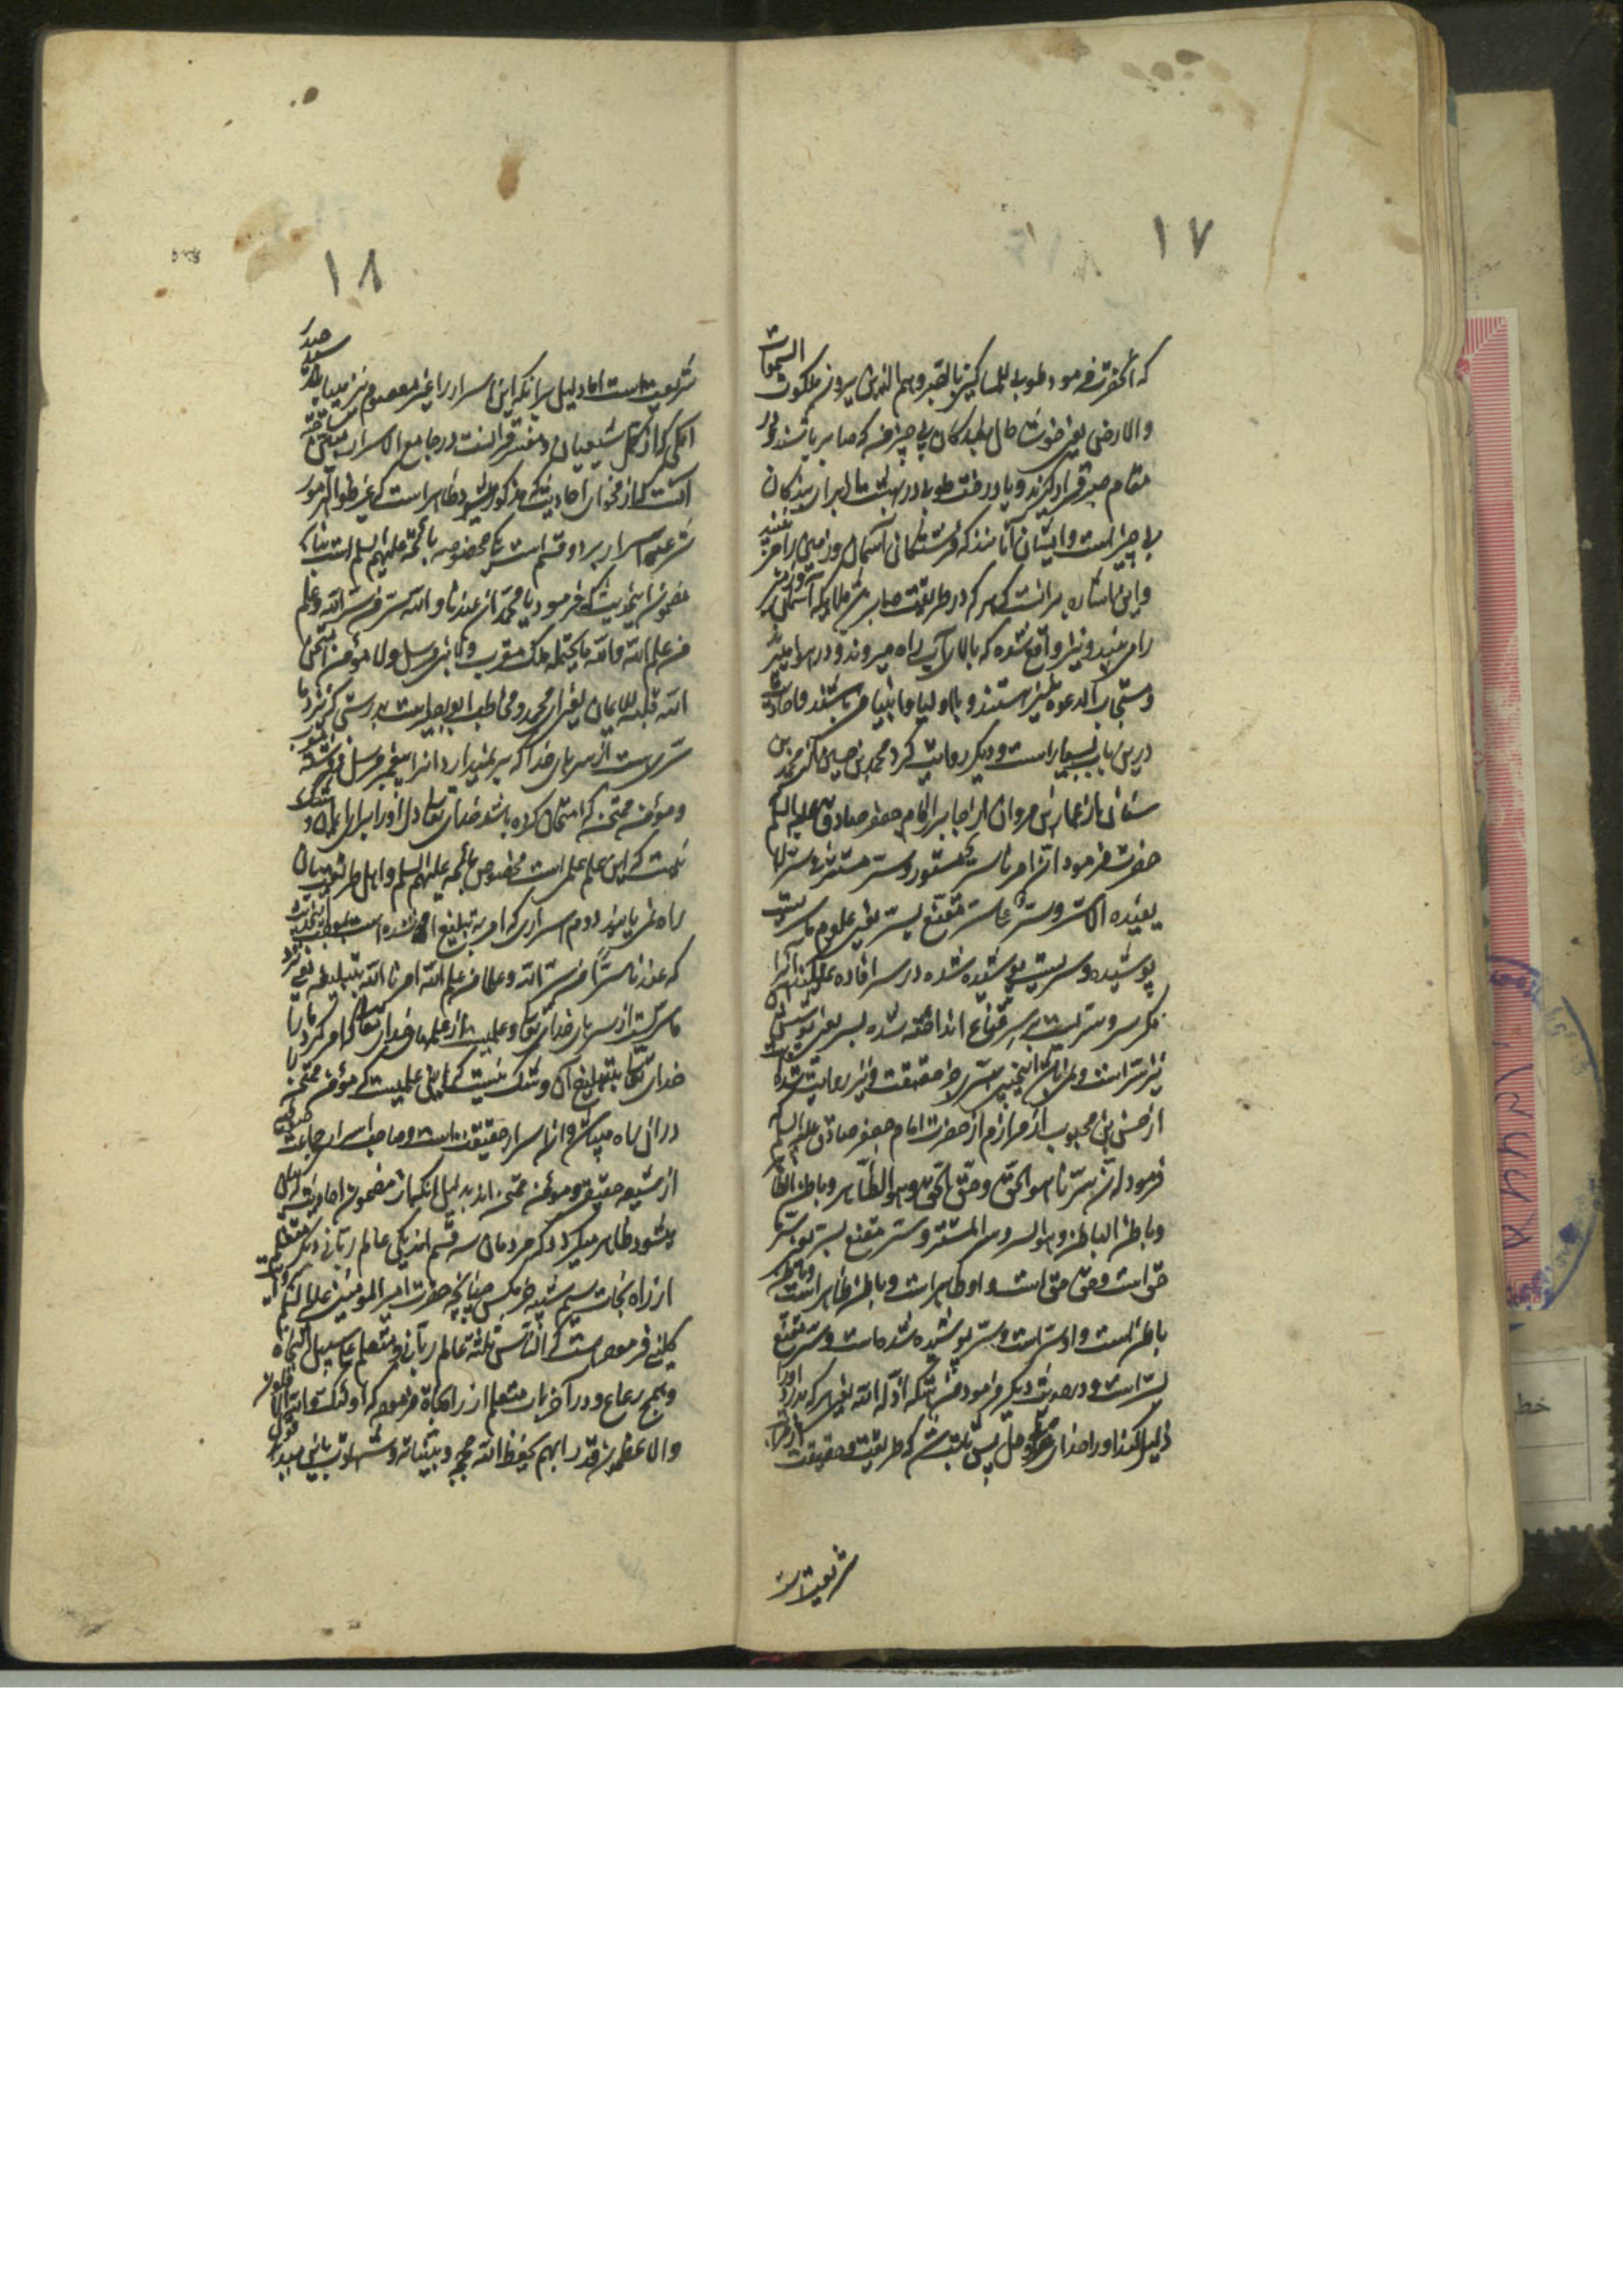 ١٧
که آنحضرت فرمود طوبی للمساکین بالصبر وهم الذین یرون ملکوت السموات
والارض یعنی خوشا حال بی چیز که صابر باشند و در
مقام صبر قرار گیرند و یا درخت طوبی در بهشت برای بندگان
بی چیز است و ایشان آنانند که فرشتگان آسمان و زمین را می بینند
و این اشاره بر آنست که هر که در طریقت صابر ملائکه آسمان
را می بیند و نیز واقع شده که بالای آب راه میروند و در هوا میپرند
و مستجاب الدعوه نیز هستند و با اولیا و انبیا می باشند و احادیث
درین باب بسیار است و دیگر روایت کرد محمد بن حسین از محمد بن
سنان از عمار بن مروان از جابر از امام جعفر صادق علیه السلم
حضرت فرمود ان امرنا سر مستور و سر مستتر و سر لا
یفیده الا سر و سر علی سر مقنع بسر یعنی علوم ما سریست
پوشیده و سریست پوشیده شده در سر افاده نمیکند آنرا
مگر سر و سریست بر سر قناع انداخته شده بسر یعنی پوشش آن
نیز سر است و نیز روایت شده
از حسن بن محبوب از مرازم از حضرت امام جعفر صادق علیه السلم
فرمود ان سرنا هو الحق و حق الحق و هو الظاهر و باطن الظاهر
و باطن الباطن و هو السر و سر المستتر و سر مقنع بسر یعنی سر ما
حق است و حق حق است و او ظاهر است و باطن ظاهر است و باطن
باطن است و او سر است و سر پوشیده شده است و سر مقنع
بسر است و در حدیث دیگر فرمود فمن هتکه اذله الله یعنی هر که بدرد او را
ذلیل کند او را خدای عز و جل پس ثابت شد که طریقت و حقیقت
شریعت است
١٨
شریعت است اما دلیل بر آنکه این اسرار را غیر معصوم نیز میباید سید حیدر
آملی که از کمل شیعیان و مفسر قرآنست در جامع الاسرار
آنست که از فحوای احادیث که مذکور میشود ظاهر است که غیر ظواهر امور
شرعیه اسرار بر دو قسم است یکی مخصوص بائمه علیهم السلم است بنابر
مضمون این حدیث که فرمود یا محمد ان عندنا والله سر من سر الله و علم
من علم الله والله ما یحتمله ملک مقرب ولا نبی مرسل ولا مؤمن امتحن
الله قلبه للایمان یعنی ای محمد و مخاطب ابو بصیر است بدرستی که نزد ما
سریست از سرهای خدا که بر نمیدارد آنرا پیغمبر مرسل و فرشته مقرب
و مؤمن ممتحن که امتحان کرده باشد خدای تعالی دل او را برای ایمان و شک
نیست که این علم علمی است مخصوص بائمه علیهم السلم و اهل طریقت بآن
راه نمی یابند دوم اسراری که امر به تبلیغ آن شده است
که عندنا سرا من سر الله و علما من علم الله امرنا الله بتبلیغه یعنی نزد
ما سریست از سرهای خدای تعالی و علمیست از علمهای خدای تعالی که امر کرد ما را
خدای تعالی بتبلیغ آن و شک نیست که این علمیست که مؤمن ممتحن
در آن راه میبابد و آن اسرار حقیقت است و صاحب اسرار جماعت
از شیعه حقیقی و مؤمن ممتحن اند بدلیل آنکه از مضمون احادیث
میشود ظاهر میگردد که مردمان سه قسم اند یکی عالم ربانی دیگر متعلم
از راه نجات سیم شبیه خرمگس چنانچه حضرت امیر المؤمنین علیه السلم
کلینی فرموده است که الناس ثلثة عالم ربانی و متعلم علی سبیل النجاة
و همج رعاع و در آخر فرموده که اولئک والله الاقلون
والاعظمون قدرا بهم یحفظ الله حججه و بیناته